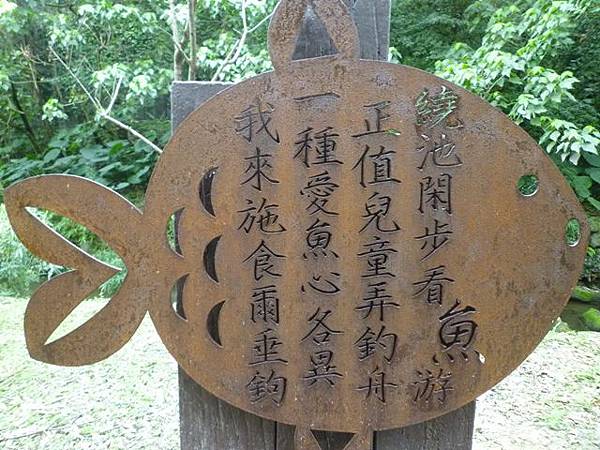 繞池閑步看魚游
正值兒童弄釣舟
一種愛魚心各異
我來施食爾垂鈎